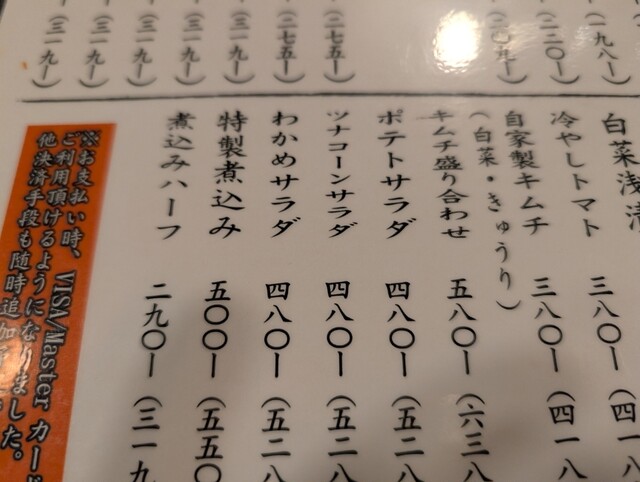 一九八ー)
二二〇ー)
二〇九ー)
二七五ー)
(二七五ー)
(三一九ー)
(三一九ー)
(三一九ー)
(三一九ー)
(三一九ー)
白菜浅漬 三八〇ー(四一八
冷やしトマト 三八〇ー(四一八
自家製キムチ
(白菜・きゅうり)
キムチ盛り合わせ 五八〇ー(六三八
ポテトサラダ 四八〇ー(五二八
ツナコーンサラダ 四八〇ー(五二八
わかめサラダ 四八〇ー(五二八
特製煮込み 五〇〇ー(五五〇
煮込みハーフ 二九〇ー(三一九
※お支払い時、VISA/Master カード
ご利用頂けるようになりました。
他決済手段も随時追加